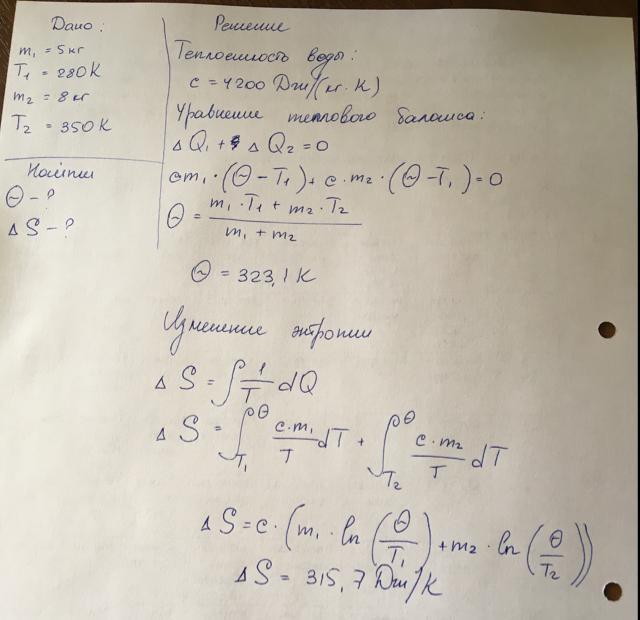 Дано:
m₁ = 5 кг
T₁ = 280 K
m₂ = 8 кг
T₂ = 350 K
Найти
Θ - ?
Δ S - ?
Решение
Теплоемкость воды:
c = 4200 Дж/(кг·K)
Уравнение теплового баланса:
Δ Q₁ + Δ Q₂ = 0
c m₁ · (Θ - T₁) + c · m₂ · (Θ - T₁) = 0
Θ = (m₁ · T₁ + m₂ · T₂) / (m₁ + m₂)
Θ = 323,1 K
Изменение энтропии
Δ S = ∫ 1/T dQ
Δ S = ∫_{T₁}^{Θ} c·m₁/T dT + ∫_{T₂}^{Θ} c·m₂/T dT
Δ S = c · (m₁ · ln (Θ/T₁) + m₂ · ln (Θ/T₂))
Δ S = 315,7 Дж/K